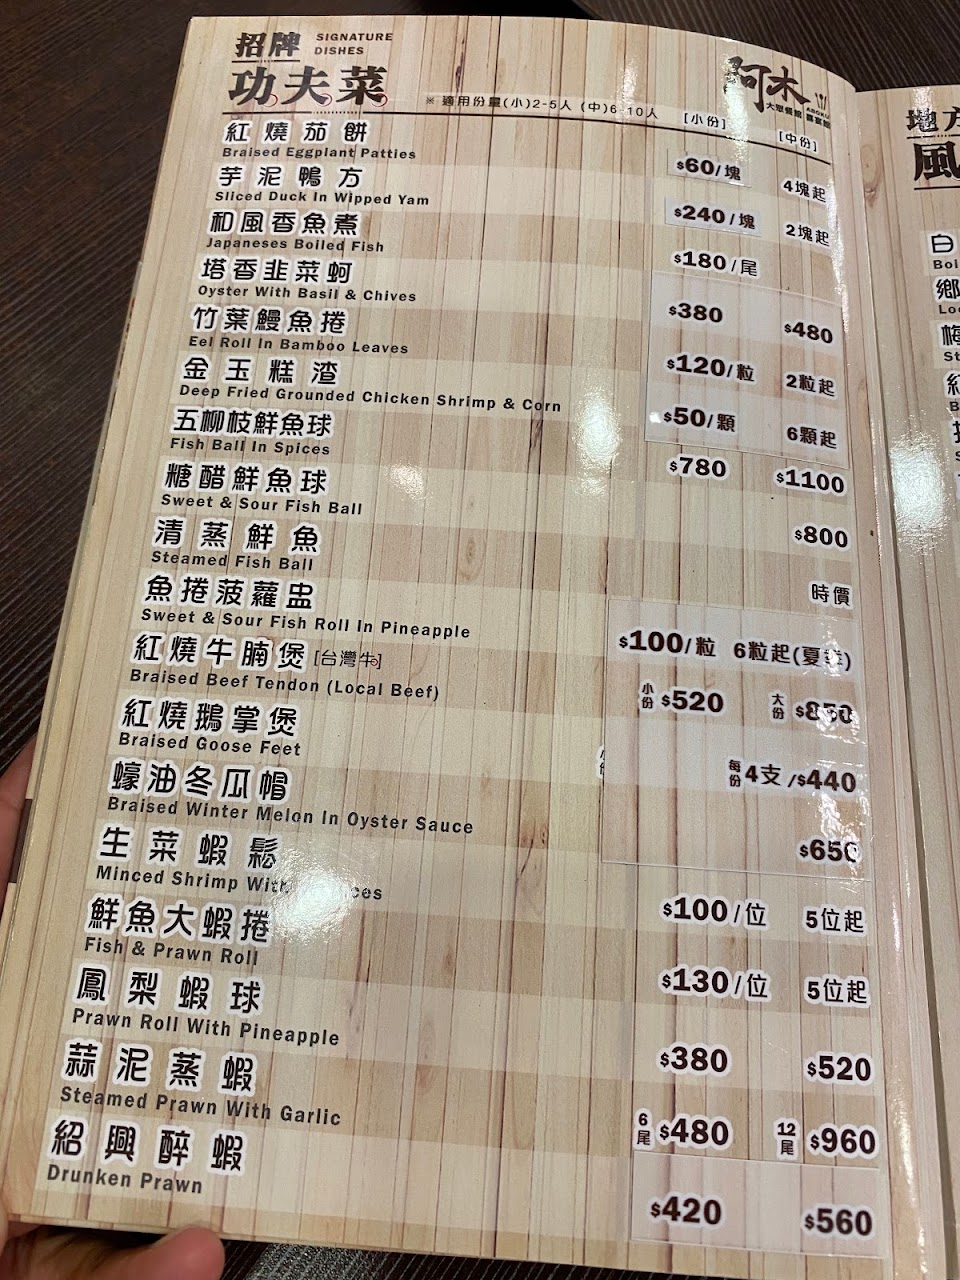 招牌 SIGNATURE DISHES
功夫菜
※ 適用份量(小)2-5人 (中)6-10人 [小份] [中份]
阿木
大眾餐館
紅燒茄餅 $60/塊 4塊起
Braised Eggplant Patties
芋泥鴨方 $240/塊 2塊起
Sliced Duck In Wipped Yam
和風香魚煮 $180/尾
Japaneses Boiled Fish
塔香韭菜蚵 $380 $480
Oyster With Basil & Chives
竹葉鰻魚捲 $120/粒 2粒起
Eel Roll In Bamboo Leaves
金玉糕渣 $50/顆 6顆起
Deep Fried Grounded Chicken Shrimp & Corn
五柳枝鮮魚球 $780 $1100
Fish Ball In Spices
糖醋鮮魚球 $800
Sweet & Sour Fish Ball
清蒸鮮魚 時價
Steamed Fish Ball
魚捲菠蘿盅 $100/粒 6粒起(夏季)
Sweet & Sour Fish Roll In Pineapple
紅燒牛腩煲 [台灣牛] 小份 $520 大份 $850
Braised Beef Tendon (Local Beef)
紅燒鵝掌煲 每份4支/$440
Braised Goose Feet
蠔油冬瓜帽 $650
Braised Winter Melon In Oyster Sauce
生菜蝦鬆 $100/位 5位起
Minced Shrimp
鮮魚大蝦捲 $130/位 5位起
Fish & Prawn Roll
鳳梨蝦球 $380 $520
Prawn Roll With Pineapple
蒜泥蒸蝦 6尾 $480 12尾 $960
Steamed Prawn With Garlic
紹興醉蝦 $420 $560
Drunken Prawn
地方
風
白
Boi
鄉
Lo
梅
St